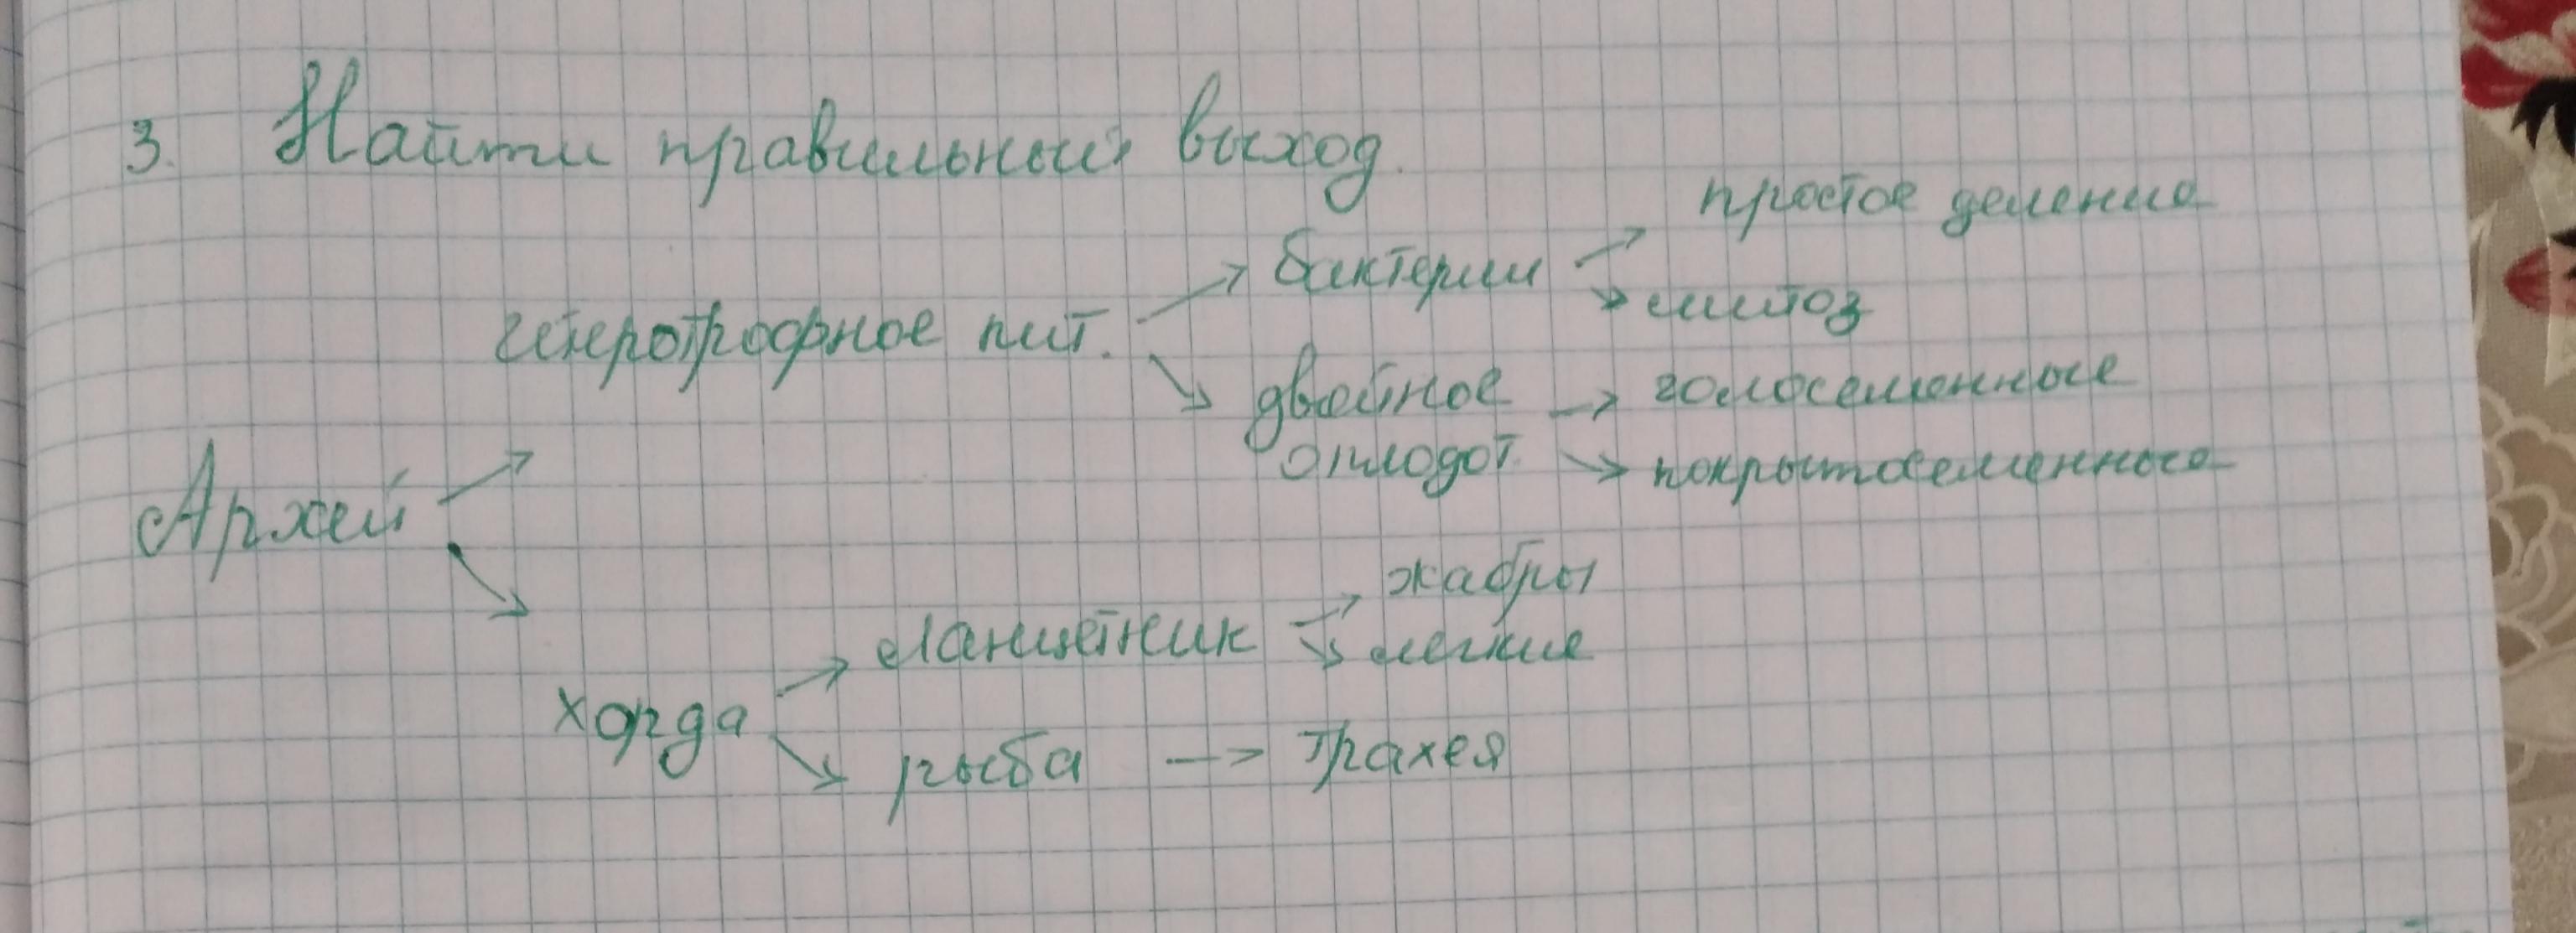 3. Найти правильный выход.
простое деление
бактерии
митоз
гетеротрофное пит.
двойное
голосеменные
оплодот.
покрытосеменные
Архей
жабры
ланцетник
легкие
хорда
рыба -> трахея